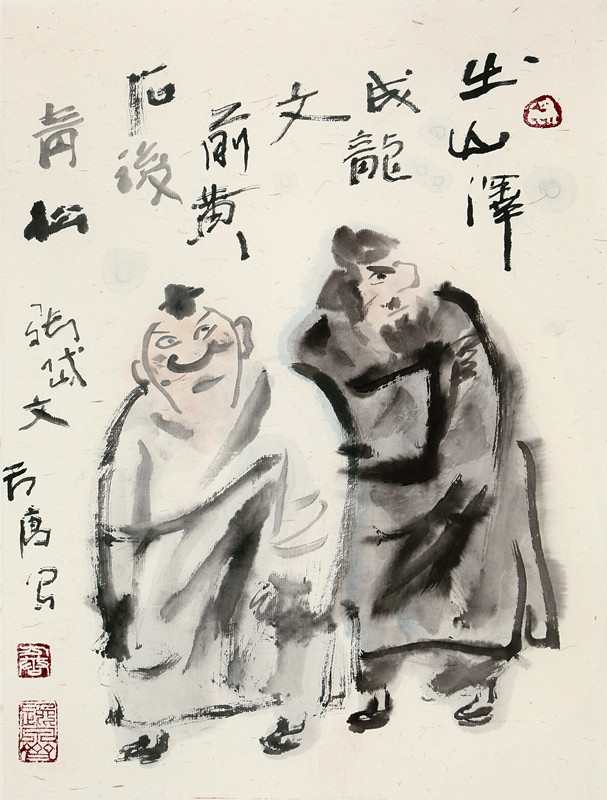 出山澤
成龍
文
前黃
石後
青松
張岱文